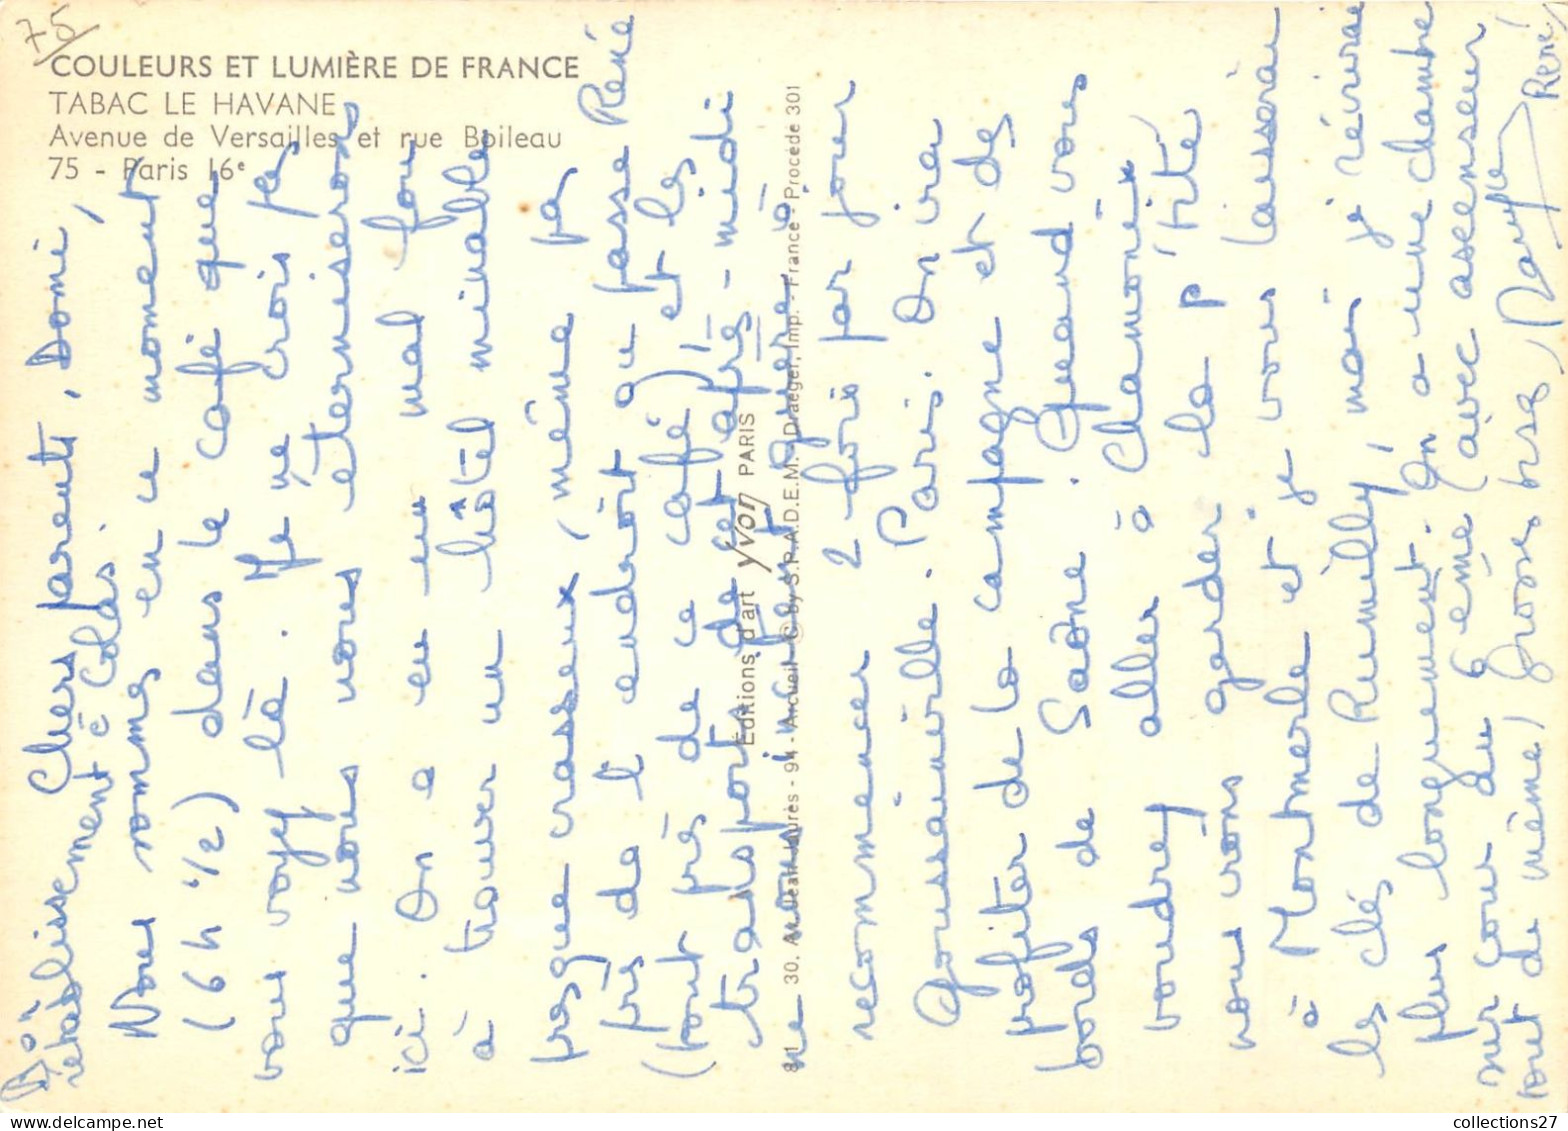 75
COULEURS ET LUMIÈRE DE FRANCE
TABAC LE HAVANE
Avenue de Versailles et rue Boileau
75 - Paris 16e
Éditions d'art YVON PARIS
30. Av. Jean-Jaurès - 94 - Arcueil © By S.P.A.D.E.M. Draeger, Imp. - France - Procédé 301
Bon
rétablissement à Colas.
Chers parents, Domi,
Nous sommes en ce moment
(6h 1/2) dans le café que
vous voyez là. Je ne crois pas
que nous nous éterniserons
ici. On a eu un mal fou
à trouver un hôtel minable
presque crasseux, même pas
près de l'endroit où passe René
(tout près de ce café) et les
transports de cet après-midi
ne nous incitent guère à
recommencer 2 fois par jour
Goussainville. Paris. On ira
profiter de la campagne et des
bords de Saône. Quand vous
voudrez aller à Chamonix
nous irons garder la p'tite
à Montmerle et je vous laisserai
les clés de Rumilly, mais je récrirai
plus longuement. On a une chambre
sur cour au 6ème (avec ascenseur
tout de même) Grosses bises,
René
collections27